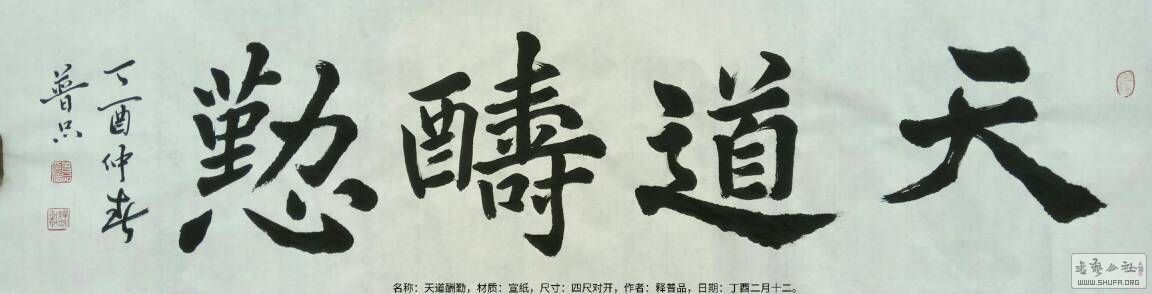 天道醻懃
丁酉仲春
普品
名称：天道酬勤，材质：宣纸，尺寸：四尺对开，作者：释普品，日期：丁酉二月十二。
书艺公社
WWW.SHUFA.ORG